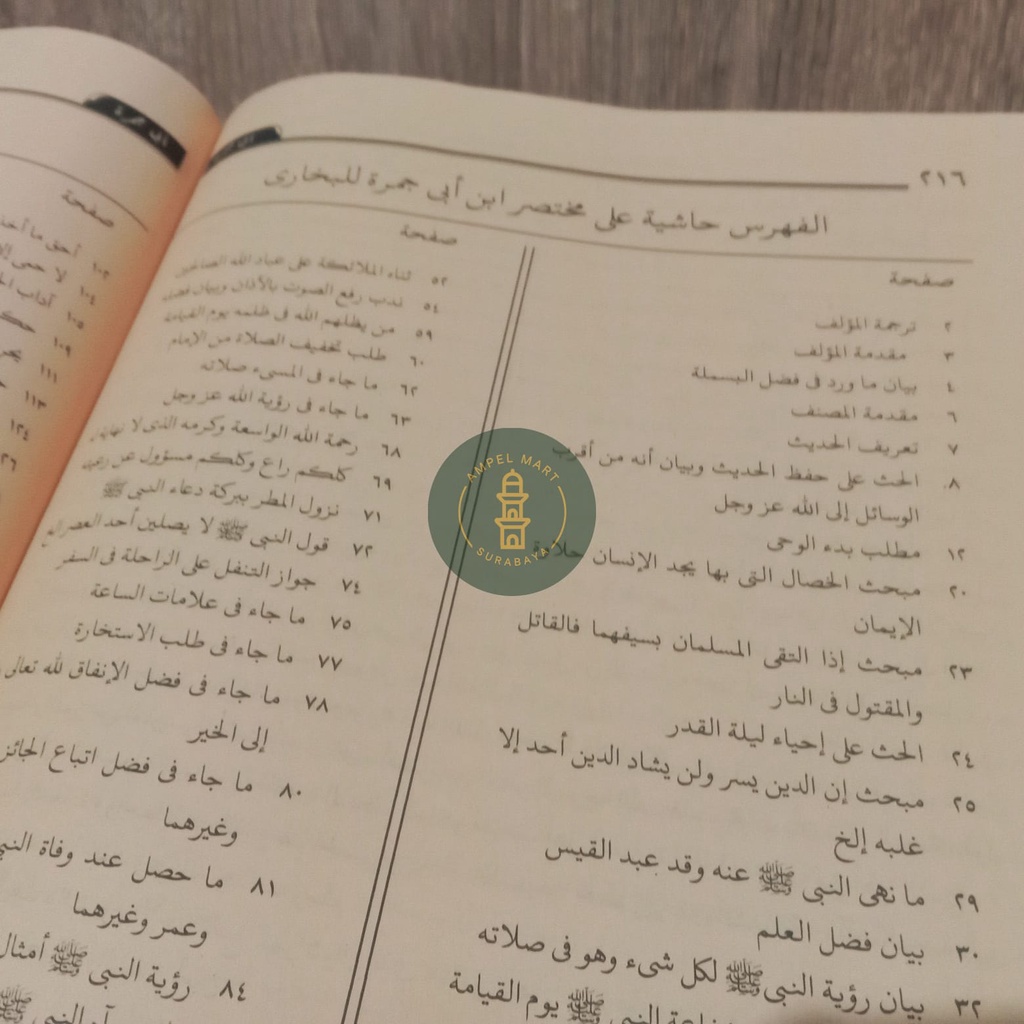 ٢١٦
الفهرس حاشية على مختصر ابن أبى جمرة للبخارى
صفحة
٢ ترجمة المؤلف
٣ مقدمة المؤلف
٤ بيان ما ورد فى فضل البسملة
٦ مقدمة المصنف
٧ تعريف الحديث
٨ الحث على حفظ الحديث وبيان أنه من أقرب
الوسائل إلى الله عز وجل
١٢ مطلب بدء الوحى
٢٠ مبحث الخصال التى بها يجد الإنسان حلاوة
الإيمان
٢٣ مبحث إذا التقى المسلمان بسيفهما فالقاتل
والمقتول فى النار
٢٤ الحث على إحياء ليلة القدر
٢٥ مبحث إن الدين يسر ولن يشاد الدين أحد إلا
غلبه إلخ
٢٩ ما نهى النبى ﷺ عنه وفد عبد القيس
٣٠ بيان فضل العلم
٣٢ بيان رؤية النبى ﷺ لكل شىء وهو فى صلاته
النبى ﷺ يوم القيامة
صفحة
٥٢ ثناء الملائكة على عباد الله الصالحين
٥٤ ندب رفع الصوت بالأذان وبيان فضله
٥٩ من يظلهم الله فى ظله يوم القيامة
٦٠ طلب تخفيف الصلاة من الإمام
٦٢ ما جاء فى المسىء صلاته
٦٣ ما جاء فى رؤية الله عز وجل
٦٨ رحمة الله الواسعة وكرمه الذى لا
٦٩ كلكم راع وكلكم مسؤول عن رعيته
٧١ نزول المطر ببركة دعاء النبى ﷺ
٧٢ قول النبى ﷺ لا يصلين أحد العصر
٧٤ جواز التنفل على الراحلة فى السفر
٧٥ ما جاء فى علامات الساعة
٧٧ ما جاء فى طلب الاستخارة
٧٨ ما جاء فى فضل الإنفاق لله تعالى
إلى الخير
٨٠ ما جاء فى فضل اتباع الجنائز
وغيرهما
٨١ ما حصل عند وفاة النبى
وعمر وغيرهما
٨٤ رؤية النبى ﷺ أمثال
النبى ﷺ
صفحة
١٠٣ أحق ما أخذ
١٠٤ لا حمى إلا
١٠٥ آداب
١٠٩
١١١
١١٣
١٢٤
AMPEL MART
SURABAYA